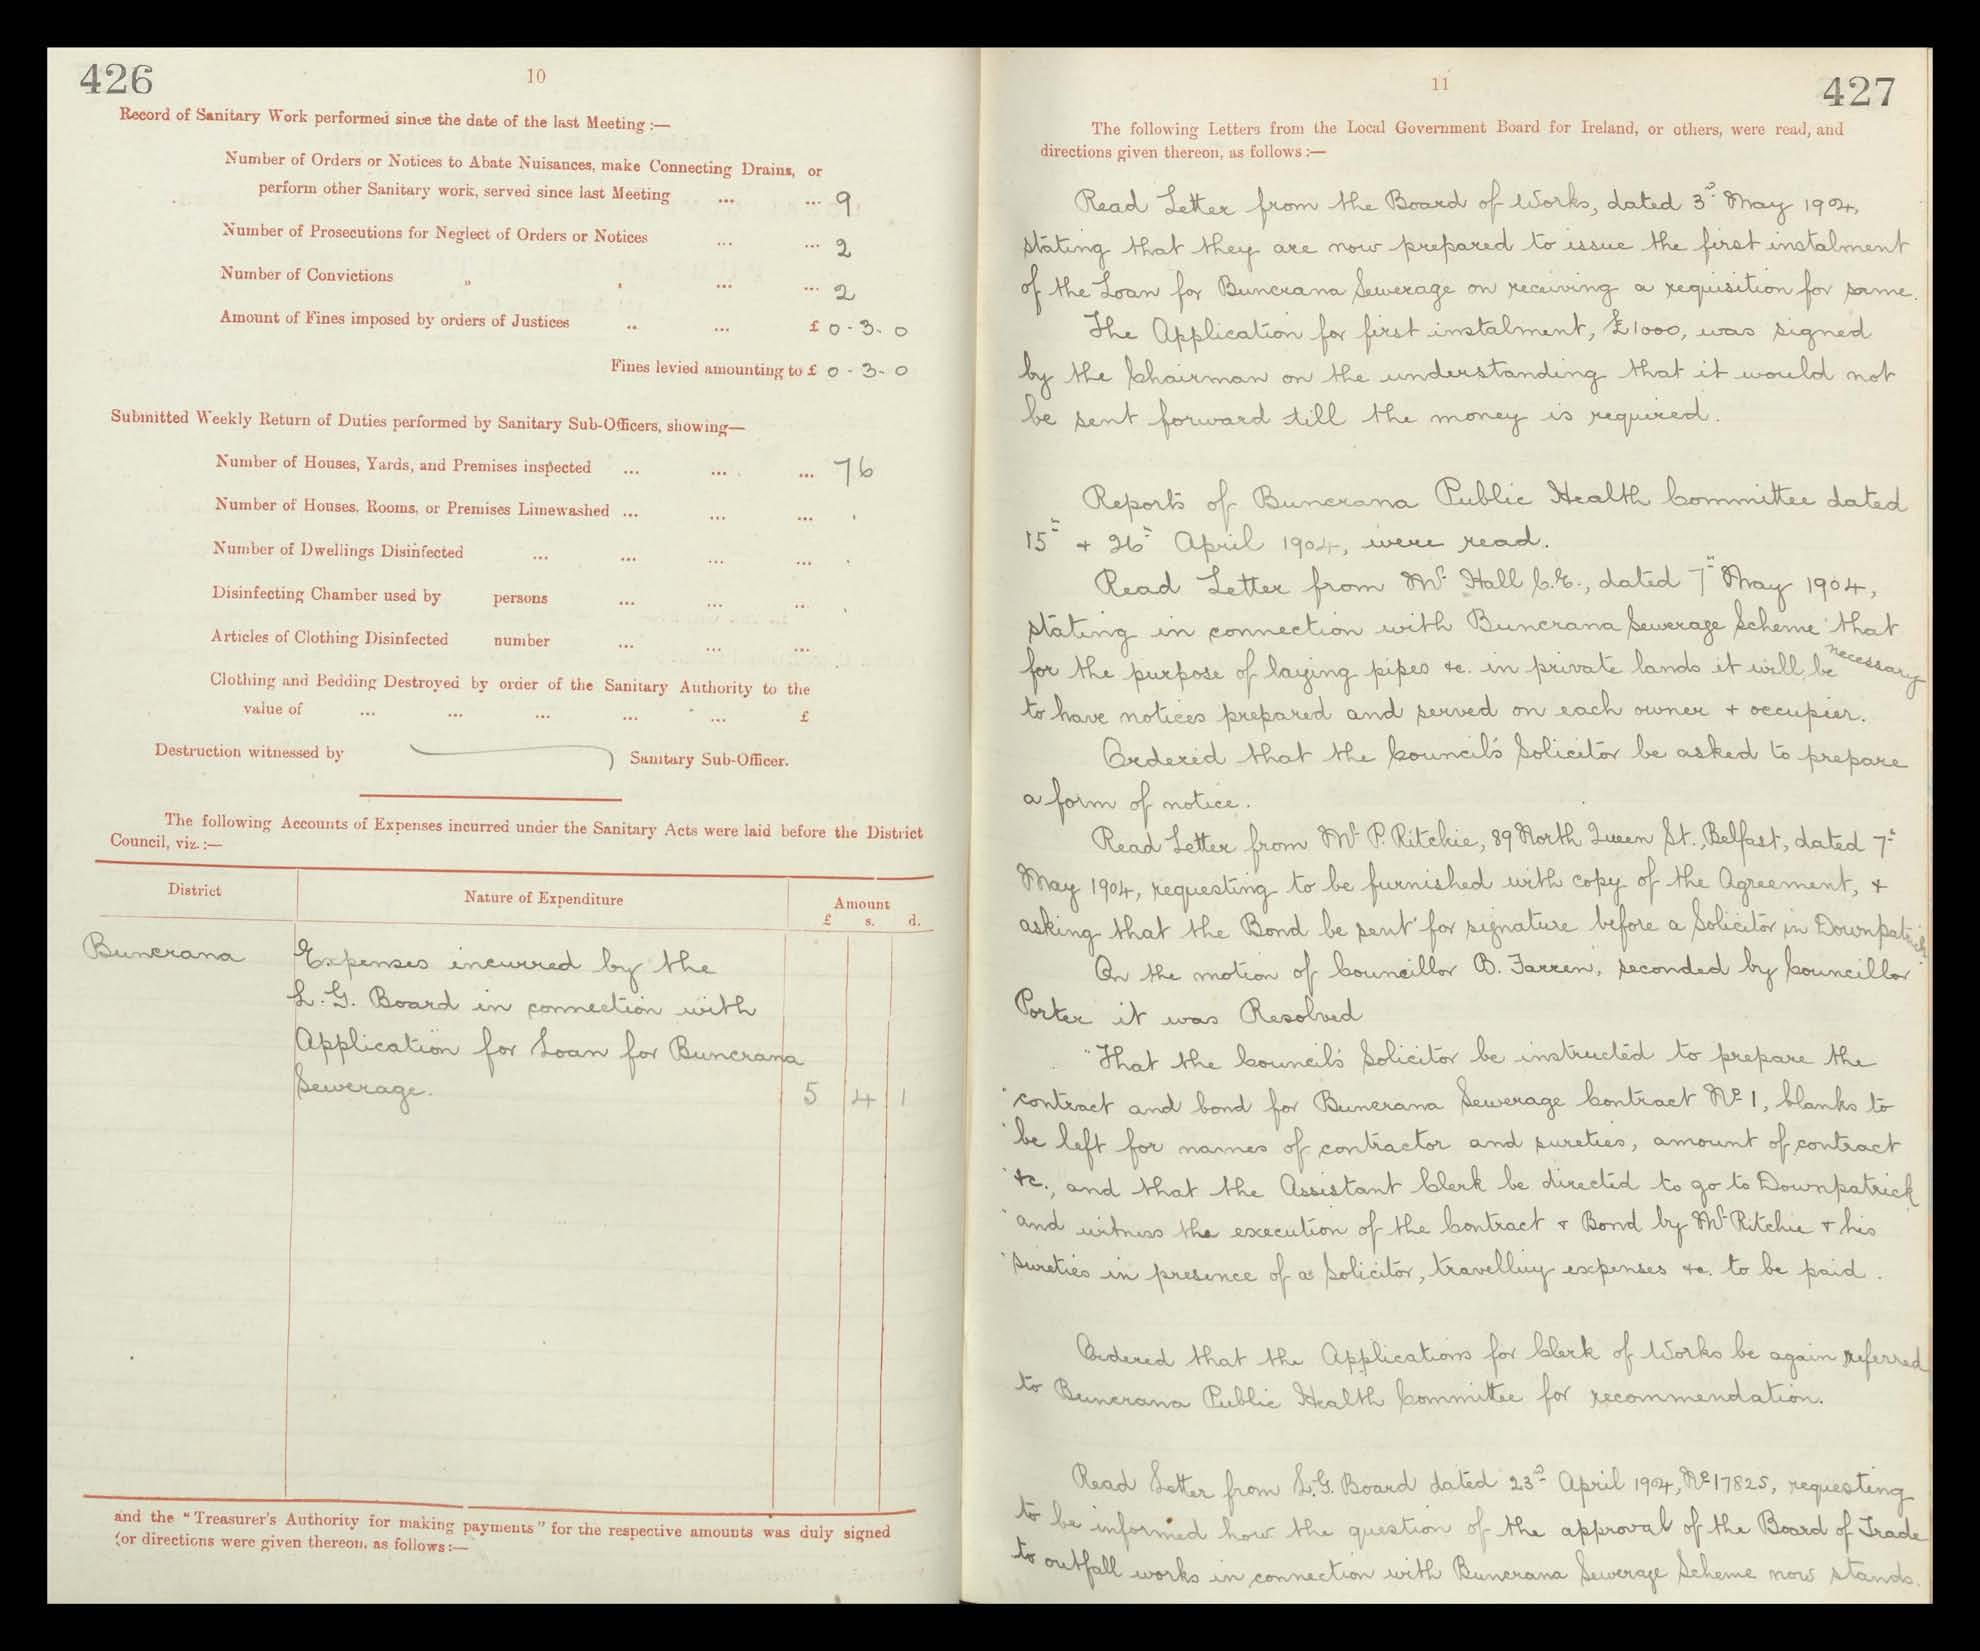 426
10
Record of Sanitary Work performed since the date of the last Meeting :—
Number of Orders or Notices to Abate Nuisances, make Connecting Drains, or
perform other Sanitary work, served since last Meeting ... ... 9
Number of Prosecutions for Neglect of Orders or Notices ... ... 2
Number of Convictions „ , ... ... 2
Amount of Fines imposed by orders of Justices .. ... £ 0-3-0
Fines levied amounting to £ 0-3-0
Submitted Weekly Return of Duties performed by Sanitary Sub-Officers, showing—
Number of Houses, Yards, and Premises inspected ... ... ... 76
Number of Houses, Rooms, or Premises Limewashed ... ... ... .
Number of Dwellings Disinfected ... ... ... ... .
Disinfecting Chamber used by persons ... ... ... .
Articles of Clothing Disinfected number ... ... ...
Clothing and Bedding Destroyed by order of the Sanitary Authority to the
value of ... ... ... ... ... £
Destruction witnessed by Sanitary Sub-Officer.
The following Accounts of Expenses incurred under the Sanitary Acts were laid before the District
Council, viz. :—
District Nature of Expenditure Amount
£ s. d.
Buncrana Expenses incurred by the
L. G. Board in connection with
Application for Loan for Buncrana
Sewerage. 5 4 1
and the "Treasurer's Authority for making payments" for the respective amounts was duly signed
(or directions were given thereon, as follows :—
11
427
The following Letters from the Local Government Board for Ireland, or others, were read, and
directions given thereon, as follows :—
Read Letter from the Board of Works, dated 3rd May 1904,
stating that they are now prepared to issue the first instalment
of the Loan for Buncrana Sewerage on receiving a requisition for same.
The Application for first instalment, £1000, was signed
by the Chairman on the understanding that it would not
be sent forward till the money is required.
Reports of Buncrana Public Health Committee dated
15th + 26th April 1904, were read.
Read Letter from Mr Hall C.E., dated 7th May 1904,
stating in connection with Buncrana Sewerage Scheme that
for the purpose of laying pipes &c. in private lands it will be necessary
to have notices prepared and served on each owner + occupier.
Ordered that the Council's Solicitor be asked to prepare
a form of notice.
Read Letter from Mr P. Ritchie, 89 North Queen St., Belfast, dated 7th
May 1904, requesting to be furnished with copy of the Agreement, +
asking that the Bond be sent for signature before a Solicitor in Downpatrick.
On the motion of Councillor B. Farren, seconded by Councillor
Porter it was Resolved
"That the Council's Solicitor be instructed to prepare the
"contract and bond for Buncrana Sewerage Contract No 1, blanks to
"be left for names of contractor and sureties, amount of contract
"&c., and that the Assistant Clerk be directed to go to Downpatrick
"and witness the execution of the Contract + Bond by Mr Ritchie + his
"sureties in presence of a Solicitor, travelling expenses &c. to be paid.
Ordered that the Applications for Clerk of Works be again referred
to Buncrana Public Health Committee for recommendation.
Read Letter from L.G. Board dated 23rd April 1904, No 17825, requesting
to be informed how the question of the approval of the Board of Trade
to outfall works in connection with Buncrana Sewerage Scheme now stands.